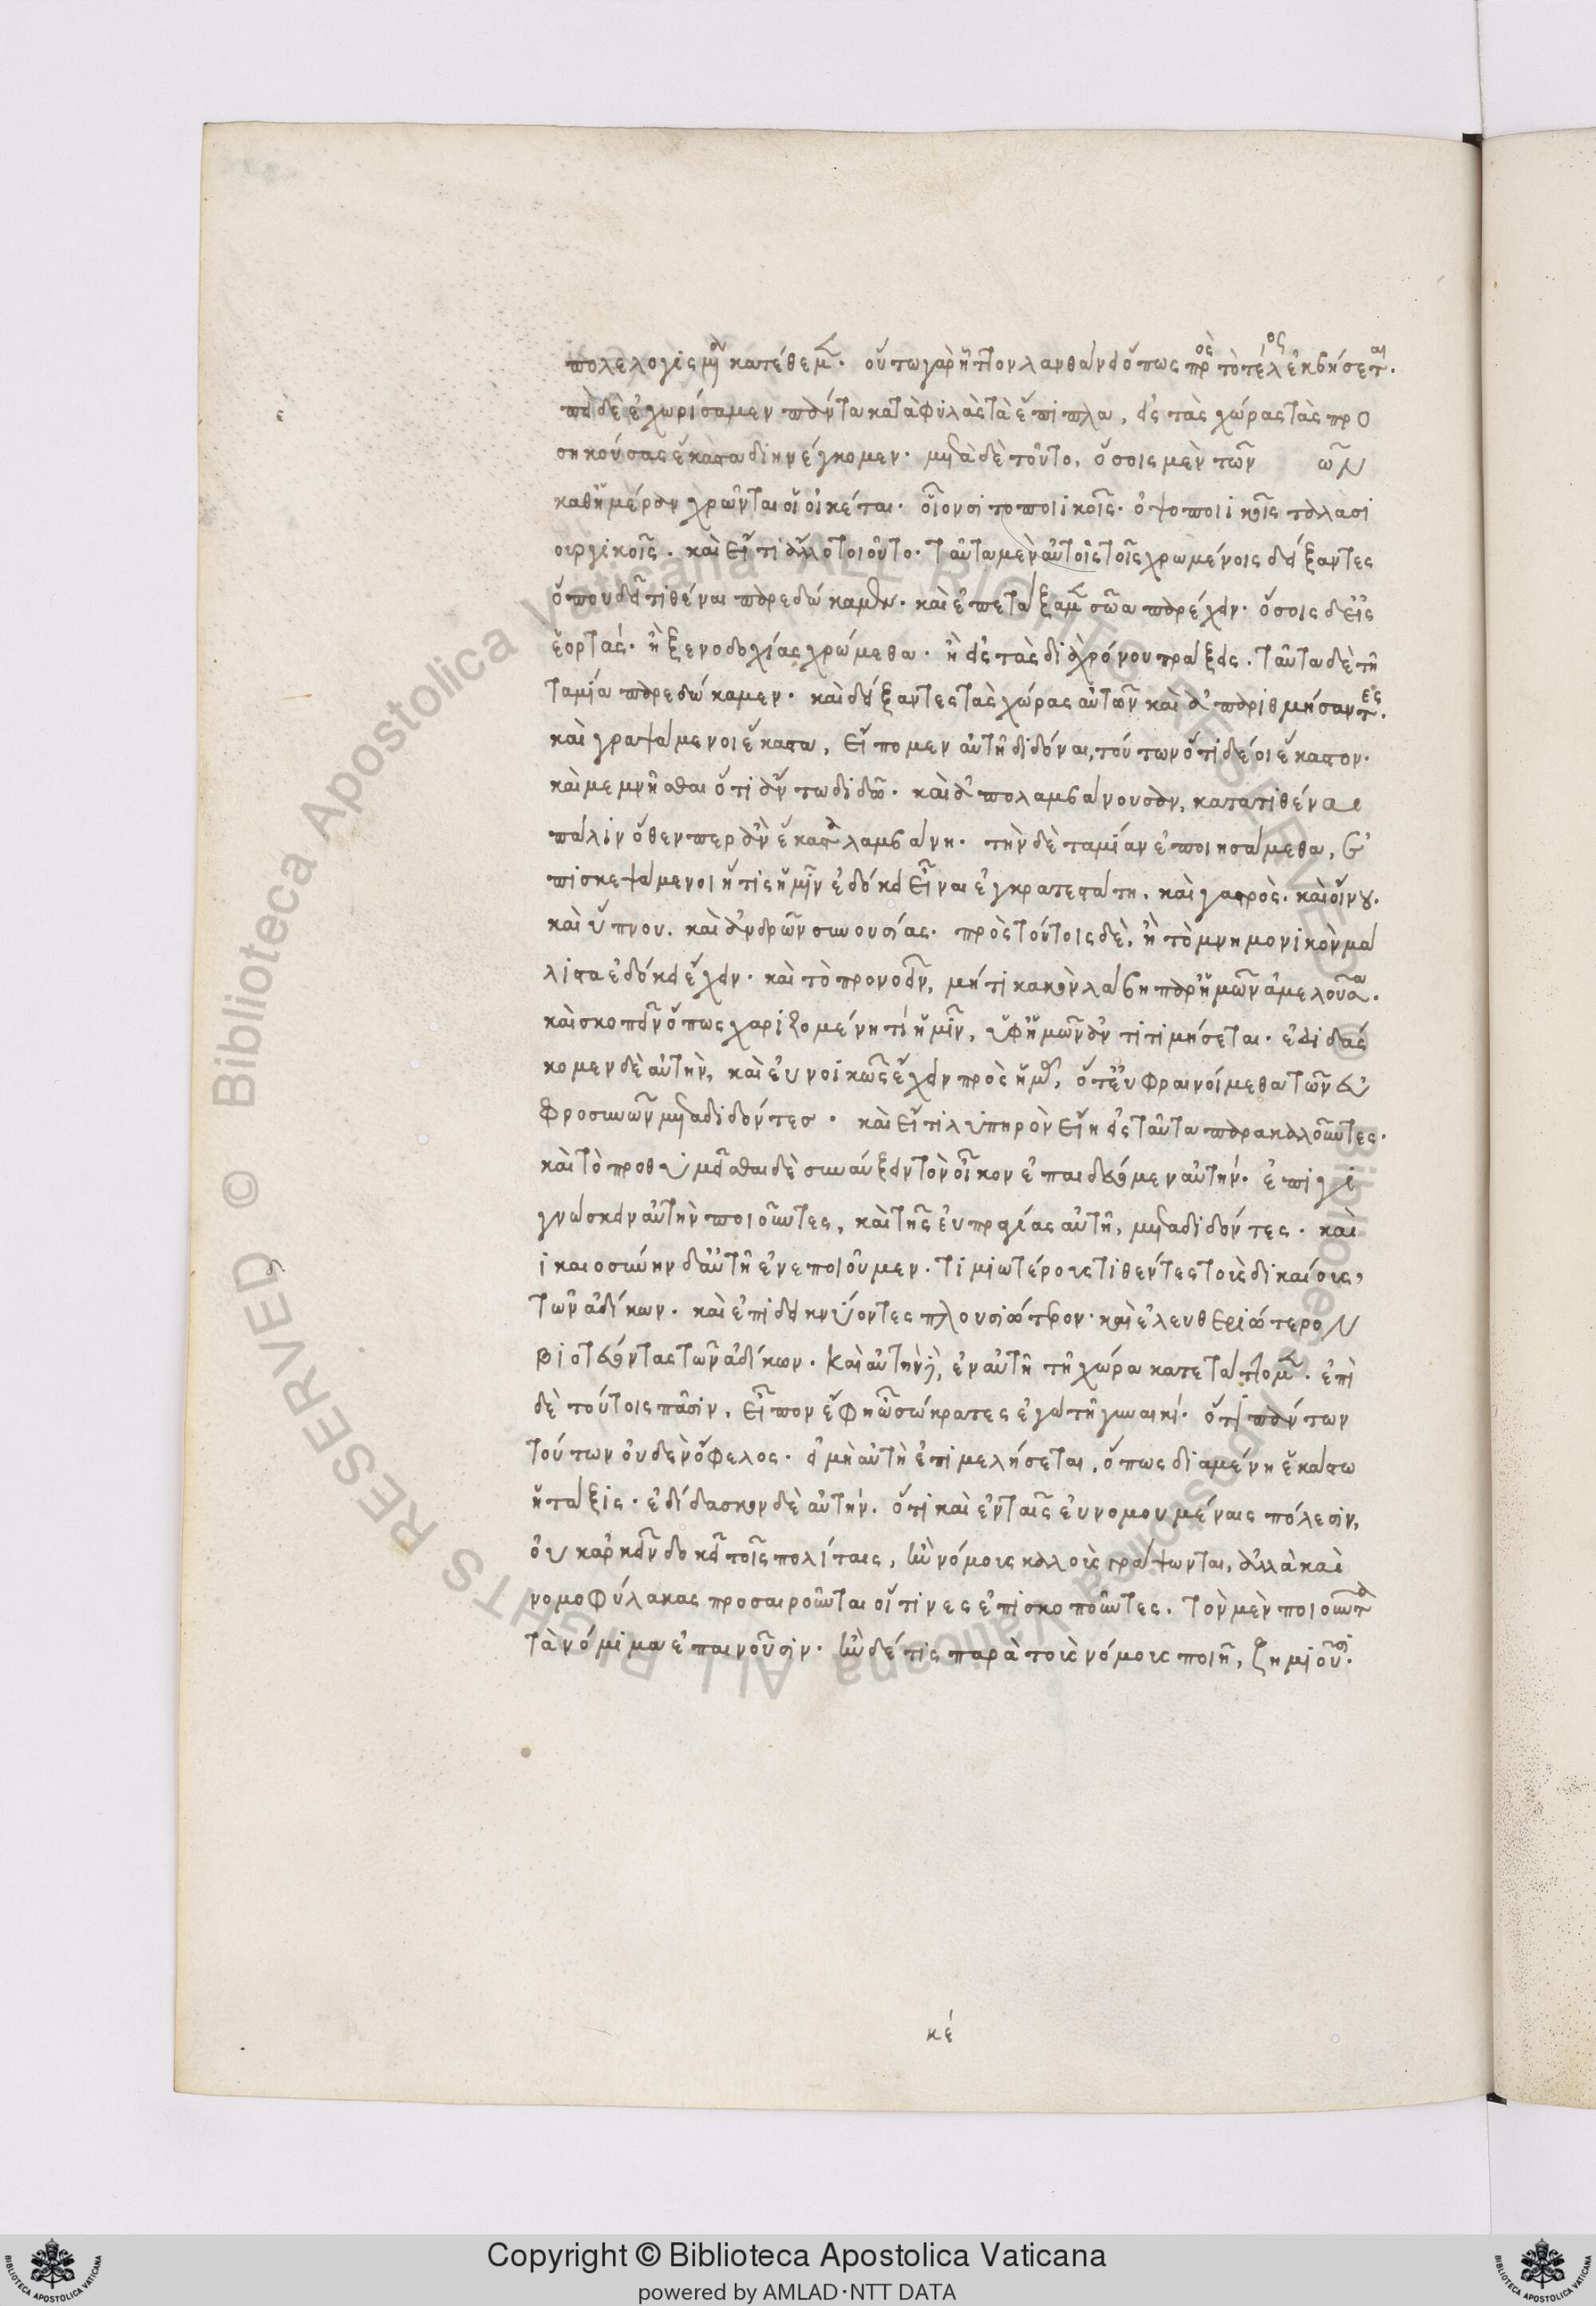 πολελογισμένα κατέθεμεν. οὕτω γὰρ ἧττον λανθάνει ὅπως πρὸς τὸ τέλος ἐκβήσεται.
ἐπεὶ δὲ ἐχωρίσαμεν πάντα κατὰ φυλὰς τὰ ἔπιπλα, εἰς τὰς χώρας τὰς προ
σηκούσας ἕκαστα διηνέγκομεν. μετὰ δὲ τοῦτο, ὅσοις μὲν τῶν ων
καθ' ἡμέραν χρῶνται οἱ οἰκέται. οἷον σιτοποιικοῖς. ὀψοποιικοῖς ταλασι
ουργικοῖς. καὶ εἴ τι ἄλλο τοιοῦτο. ταῦτα μὲν αὐτοῖς τοῖς χρωμένοις δείξαντες
ὅπου δεῖ τιθέναι παρεδώκαμεν. καὶ ἐπετάξαμεν σῶα παρέχειν. ὅσοις δ' εἰς
ἑορτάς. ἢ ξενοδοχίας χρώμεθα. ἢ εἰς τὰς διὰ χρόνου πράξεις. ταῦτα δὲ τῆ
ταμία παρεδώκαμεν. καὶ δείξαντες τὰς χώρας αὐτῶν καὶ ἀπαριθμήσαντες.
καὶ γραψάμενοι ἕκαστα, εἴπομεν αὐτῆ διδόναι, τούτων ὅτι δέοι ἕκαστον.
καὶ μεμνῆσθαι ὅτι ἄν τω διδῶ. καὶ ἀπολαμβάνουσαν, κατατιθέναι
πάλιν ὅθεν περ ἂν ἕκαστα λαμβάνη. τὴν δὲ ταμίαν ἐποιησάμεθα, ἐ
πισκεψάμενοι ἥτις ἡμῖν ἐδόκει εἶναι ἐγκρατεστάτη. καὶ γαστρὸς. καὶ οἴνου.
καὶ ὕπνου. καὶ ἀνδρῶν συνουσίας. πρὸς τούτοις δὲ, ἢ τὸ μνημονικὸν μά
λιστα ἐδόκει ἔχειν. καὶ τὸ προνοεῖν, μή τι κακὸν λάβη παρ' ἡμῶν ἀμελοῦσα.
καὶ σκοπεῖν ὅπως χαριζομένη τὶ ἡμῖν, ὑφ' ἡμῶν ἀντιτιμήσεται. ἐδιδάσ
κομεν δὲ αὐτὴν, καὶ εὐνοικῶς ἔχειν πρὸς ἡμᾶς, ὅτ' εὐφραινοίμεθα τῶν εὐ
φροσυνῶν μεταδιδόντες. καὶ εἴ τι λυπηρὸν εἴη εἰς ταῦτα παρακαλοῦντες.
καὶ τὸ προθυμεῖσθαι δὲ συναύξειν τὸν οἶκον ἐπαιδεύομεν αὐτήν. ἐπιγι
γνώσκειν αὐτὴν ποιοῦντες, καὶ τῆς εὐπραγίας αὐτῆ, μεταδιδόντες. καὶ
ικαιοσύνην δ' αὐτῆ ἐνεποιοῦμεν. τιμιωτέρους τιθέντες τοὺς δικαίους,
τῶν ἀδίκων. καὶ ἐπιδεικνύοντες πλουσιώτερον. καὶ ἐλευθεριώτερον
βιοτεύοντας τῶν ἀδίκων. Καὶ αὐτὴν δὲ, ἐν αὐτῆ τῆ χώρα κατετάττομεν. ἐπὶ
δὲ τούτοις πᾶσιν, εἶπον ἔφη ὦ σώκρατες ἐγὼ τῆ γυναικί. ὅτι πάντων
τούτων οὐδὲν ὄφελος. εἰ μὴ αὐτὴ ἐπιμελήσεται, ὅπως διαμένη ἑκάστω
ἡ τάξις. ἐδίδασκον δὲ αὐτήν. ὅτι καὶ ἐν ταῖς εὐνομουμέναις πόλεσιν,
οὐκ ἀρκεῖν δοκεῖ τοῖς πολίταις, ἢν νόμους καλοὺς γράψωνται, ἀλλὰ καὶ
νομοφύλακας προσαιροῦνται οἵτινες ἐπισκοποῦντες. τὸν μὲν ποιοῦντα
τὰ νόμιμα ἐπαινοῦσιν. ἢν δέ τις παρὰ τοὺς νόμους ποιῆ, ζημιοῦσι.
κέ
Copyright © Biblioteca Apostolica Vaticana
powered by AMLAD·NTT DATA